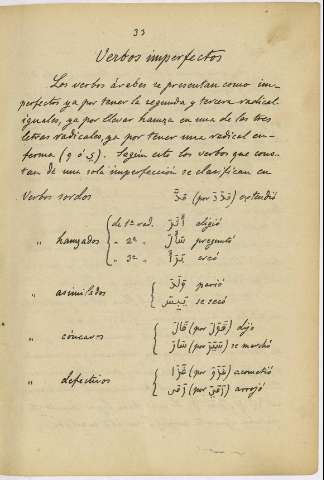 33
Verbos imperfectos
Los verbos árabes se presentan como im-
perfectos ya por tener la segunda y tercera radical
iguales, ya por llevar hamza en una de las tres
letras radicales, ya por tener una radical en-
ferma (و ó ي). Según esto los verbos que cons-
tan de una sola imperfección se clasifican en
Verbos sordos مَدَّ (por مَدَدَ) extendió
" hamzados de 1ª rad. أَثَرَ eligió
" 2ª " سَأَلَ preguntó
" 3ª " بَرَأَ creó
" asimilados وَلَدَ parió
يَبِسَ se secó
" cóncavos قَالَ (por قَوَلَ) dijo
سَارَ (por سَيَرَ) se marchó
" defectivos غَزَا (por غَزَوَ) acometió
رَمَى (por رَمَيَ) arrojó